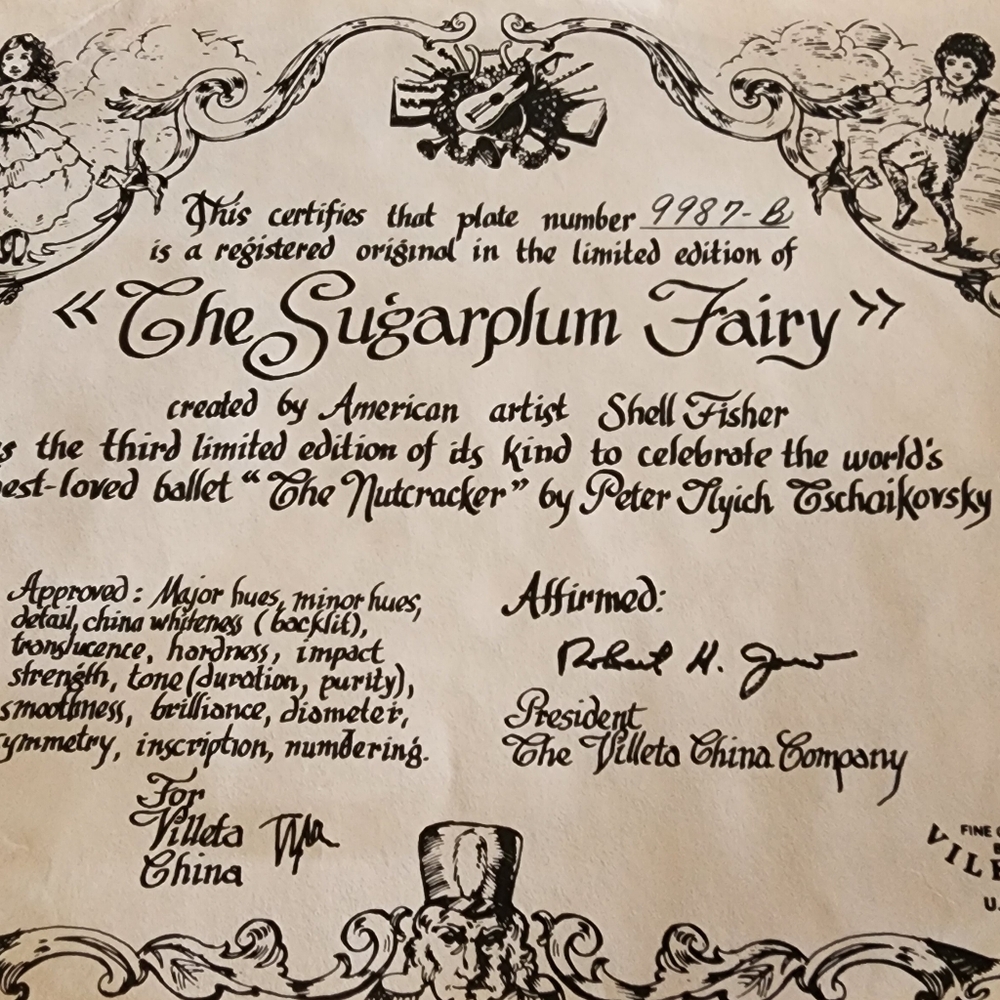 This certifies that plate number 9987-B
is a registered original in the limited edition of
«The Sugarplum Fairy»
created by American artist Shell Fisher
s the third limited edition of its kind to celebrate the world's
est-loved ballet "The Nutcracker" by Peter Ilyich Tschaikovsky
Approved: Major hues, minor hues,
detail, china whiteness (backlit),
translucence, hardness, impact
strength, tone (duration, purity),
smoothness, brilliance, diameter,
ymmetry, inscription, numbering.
For
Villeta
China
Affirmed:
Robert H.
President
The Villeta China Company
FINE
VILE
U.